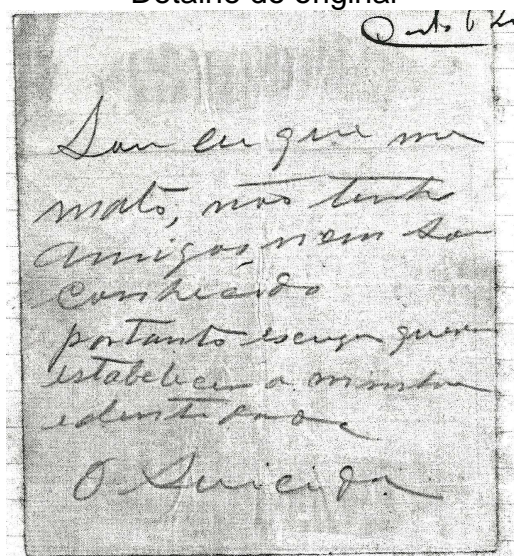 Detalhe do original
Sou eu que me
mato, não tenho
amigos, nem sou
conhecido
portanto
estabelecer a minha
edentidade
O Suicida